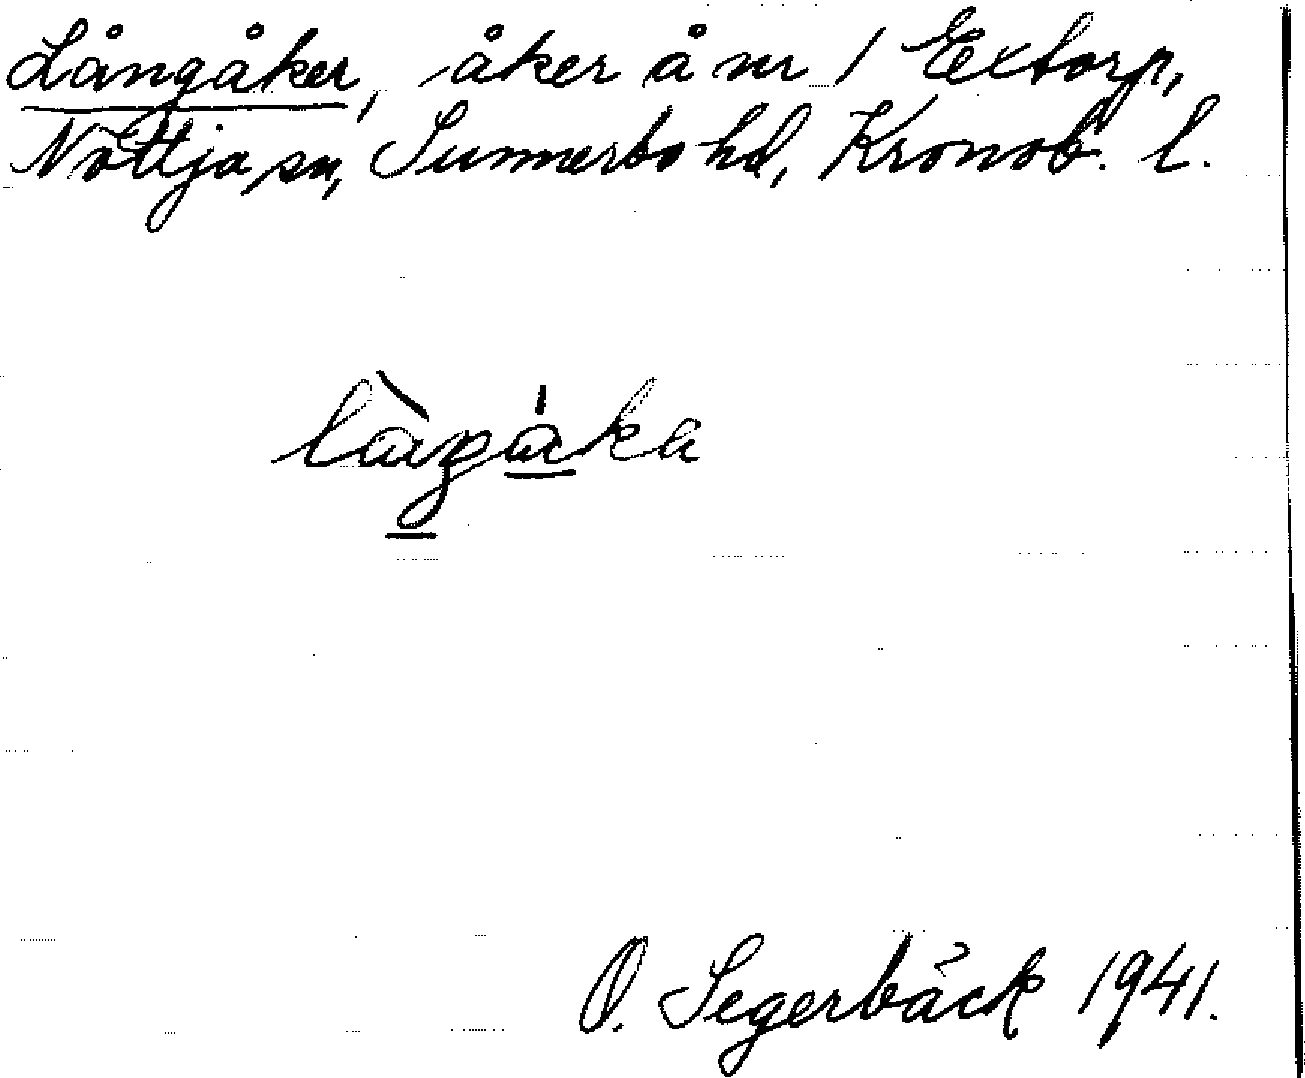 Långåker, åker å nr 1 Extorp,
Nöttja sn, Sunnerbo hd, Kronob. l.
O. Segerbäck 1941.